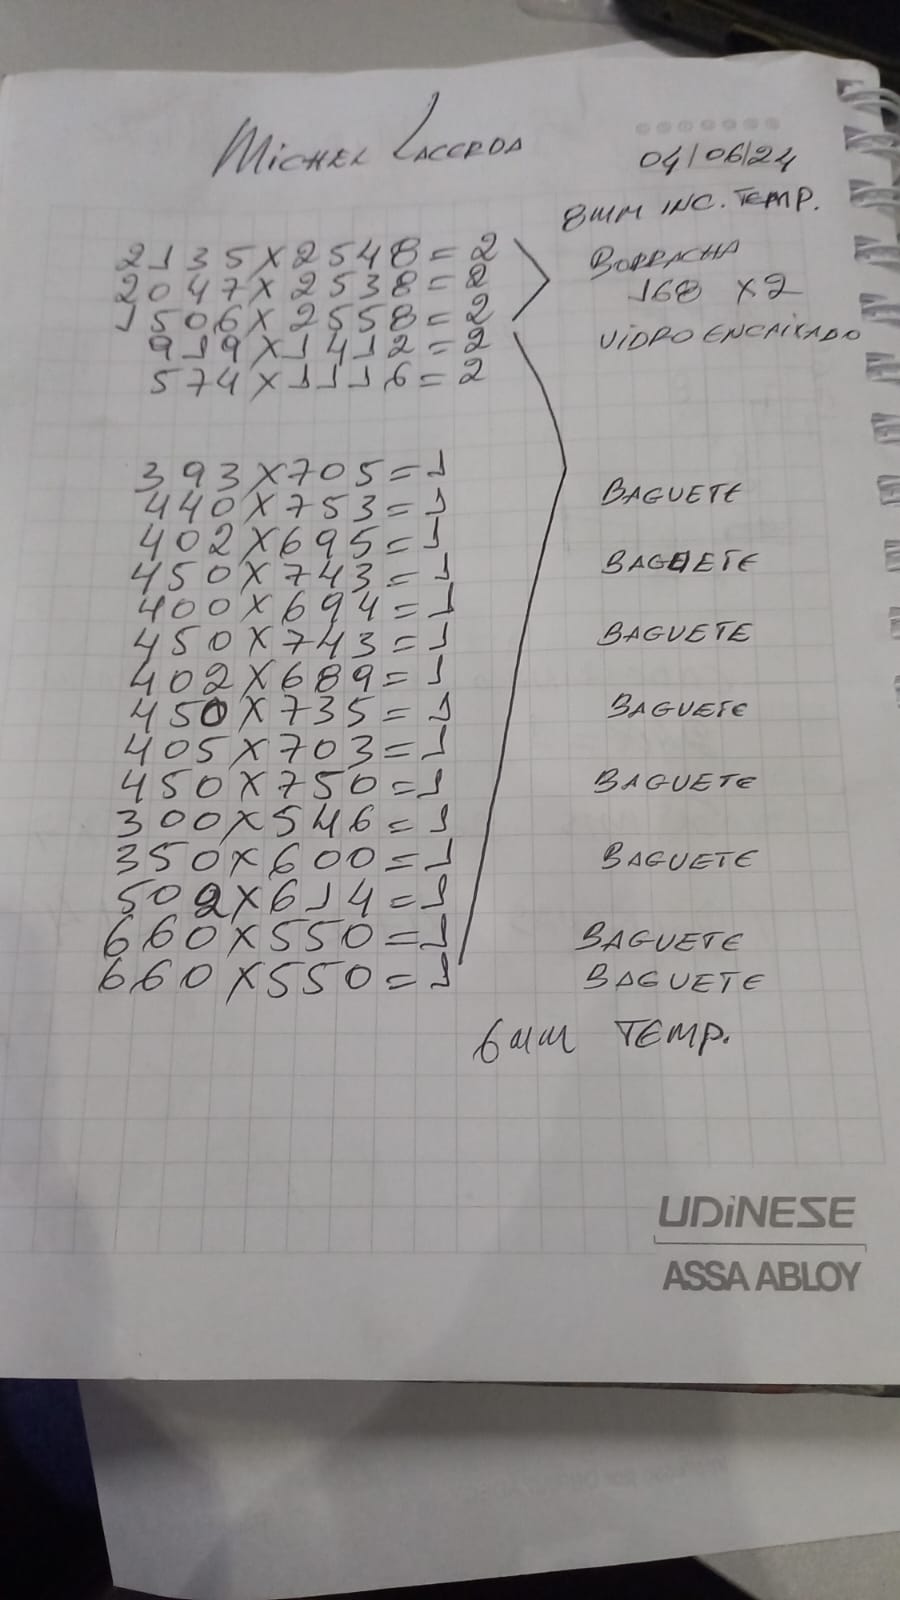 MICHEL LACERDA
04/06/24
8MM INC. TEMP.
2135X2548=2
BORRACHA
2047X2538=2
168 X2
1506X2558=2
VIDRO ENCAIXADO
919X1412=2
574X1116=2
393X705=1
BAGUETE
440X753=1
402X695=1
BAGUETE
450X743=1
400X694=1
BAGUETE
450X743=1
402X689=1
BAGUETE
450X735=1
405X703=1
BAGUETE
450X750=1
300X546=1
BAGUETE
350X600=1
502X614=1
660X550=1
BAGUETE
660X550=1
BAGUETE
6MM TEMP.
UDINESE
ASSA ABLOY